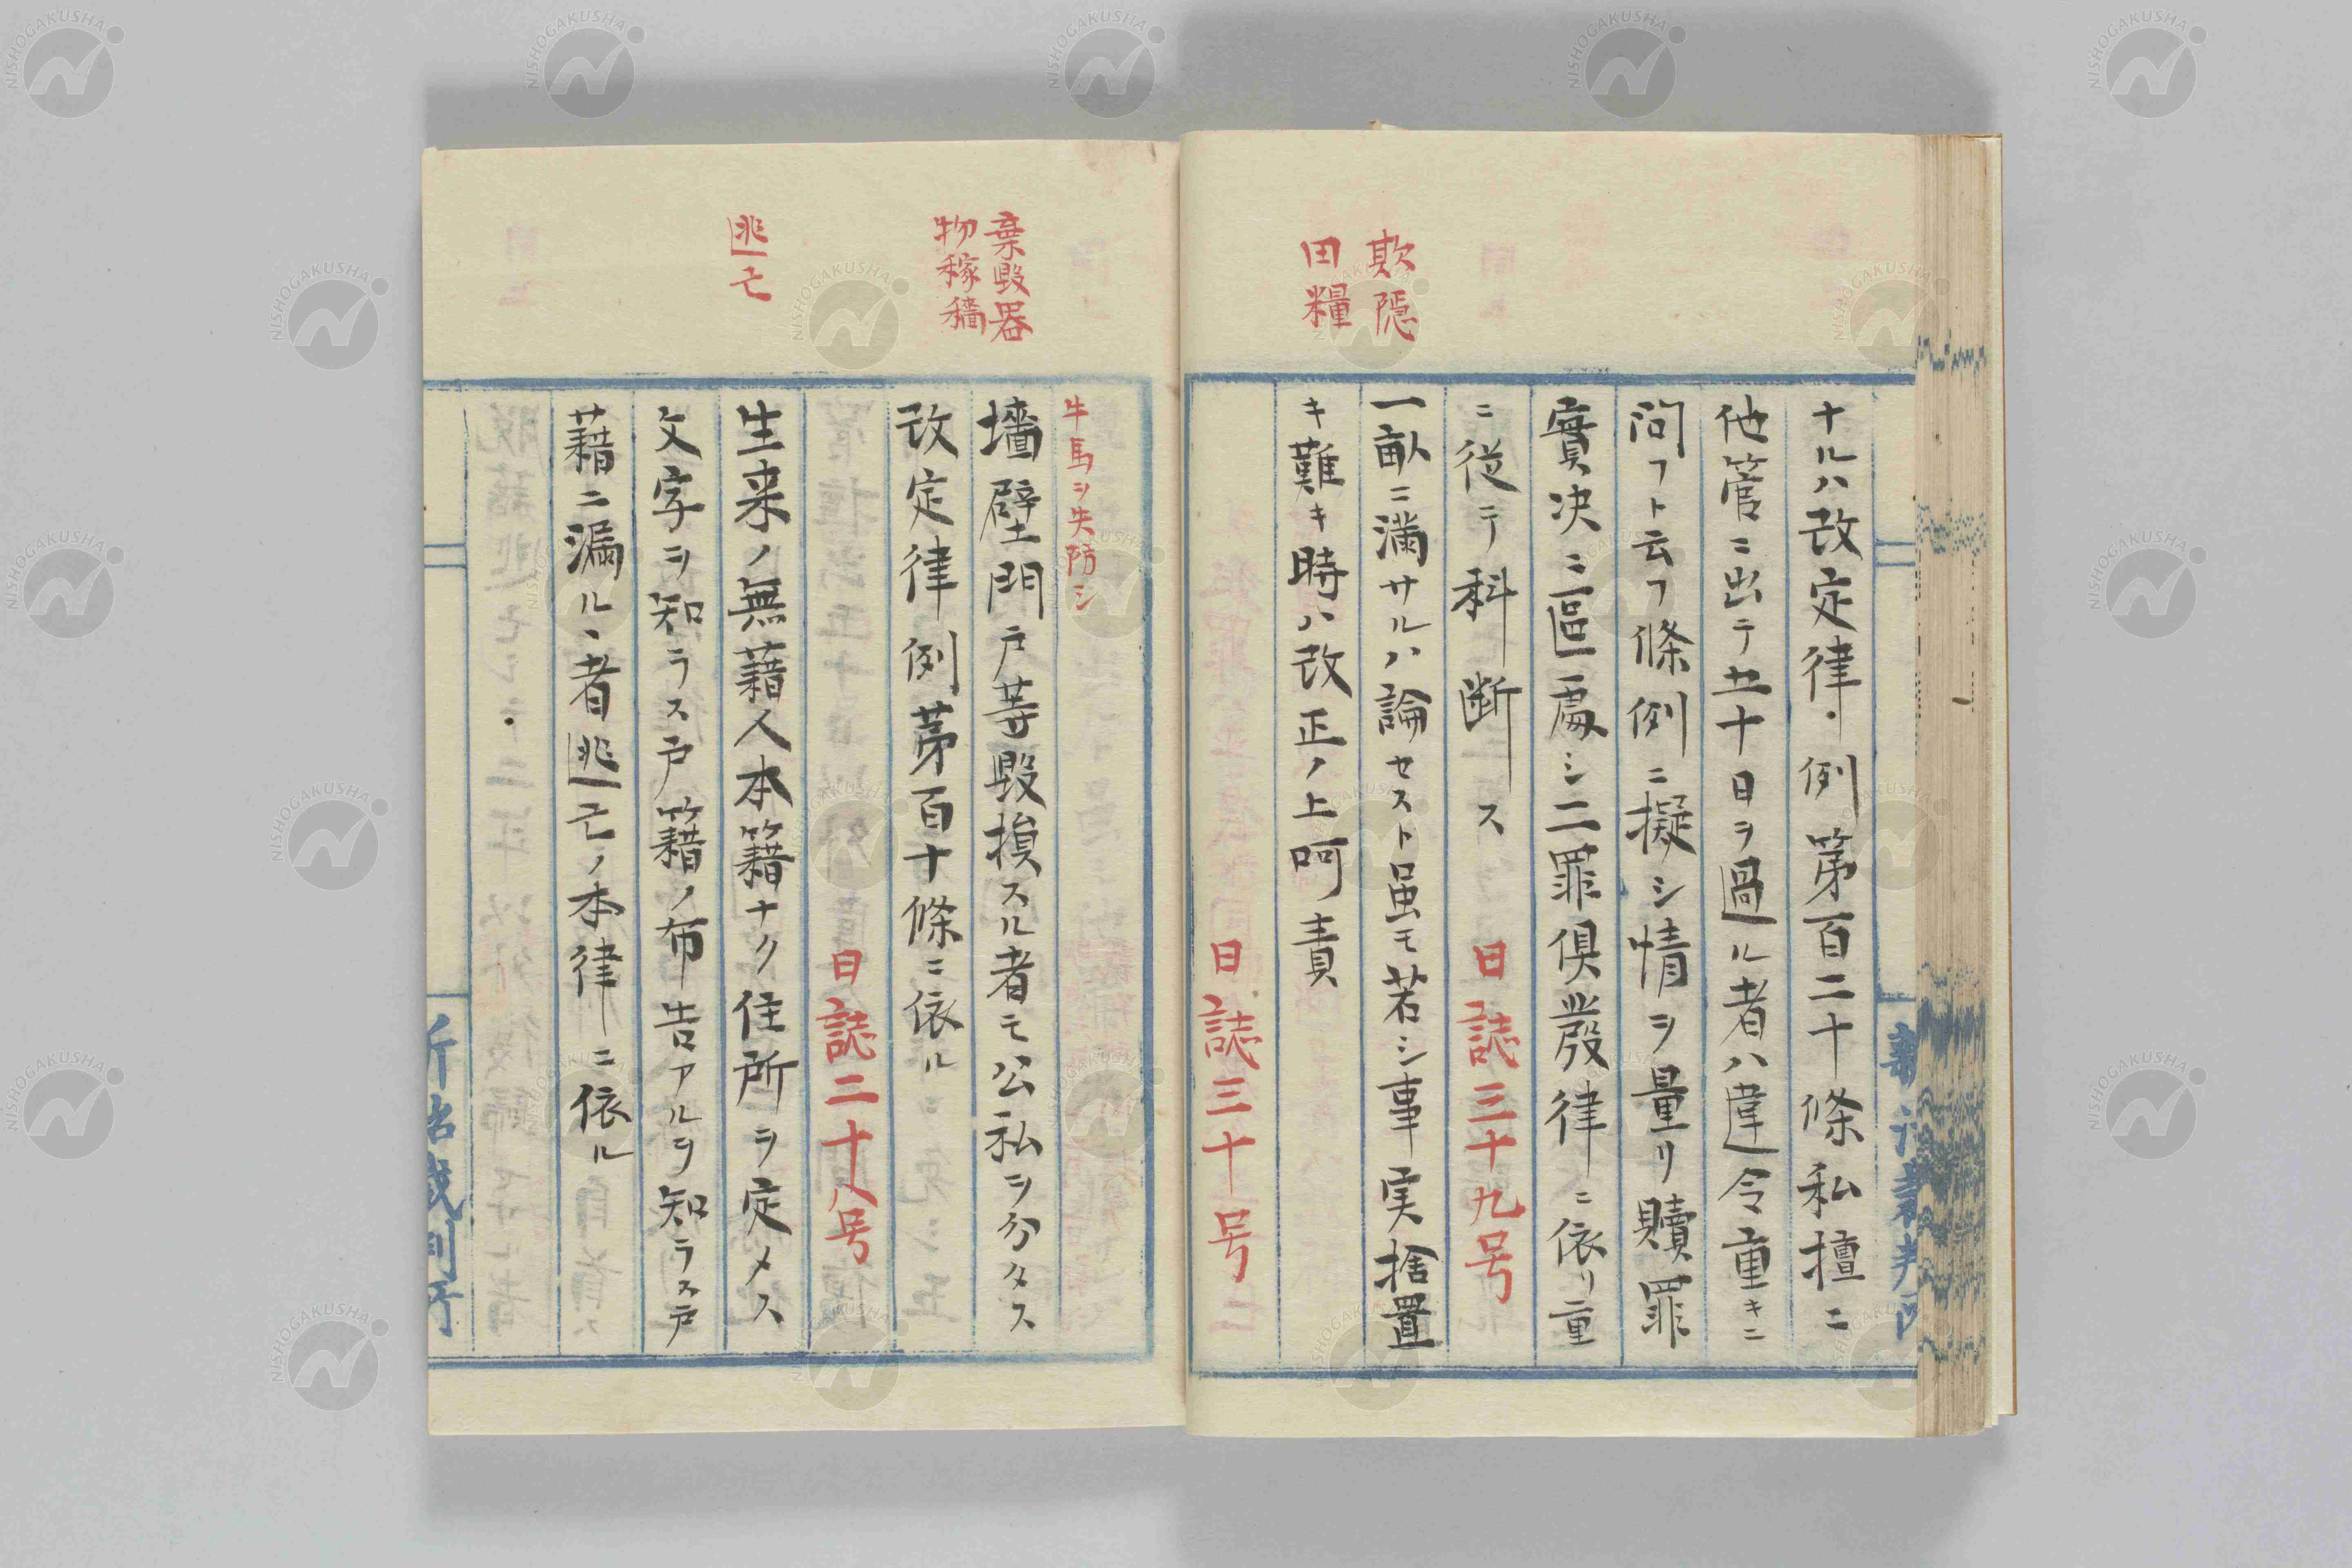 ナルハ改定律例第百二十條私擅ニ
他管ニ出テ五十日ヲ過ル者ハ違令重キニ
問フト云フ條例ニ擬シ情ヲ量リ贖罪
實决ニ區處シ二罪倶發律ニ依リ重
ニ従テ科断ス 日誌三十九号
欺隠
田糧
一畝ニ満サルハ論セスト虽モ若シ事実捨置
キ難キ時ハ改正ノ上呵責
日誌三十一号
牛馬ヲ失防シ
棄毀器
物稼穡
墻壁門戸等毀損スル者モ公私ヲ分タス
改定律例苐百十條ニ依ル
日誌二十八号
逃亡
生来ノ無藉人本籍ナク住所ヲ定メス
文字ヲ知ラス戸籍ノ布告アルヲ知ラス戸
藉ニ漏ルヽ者逃亡ノ本律ニ依ル
NISHOGAKUSHA